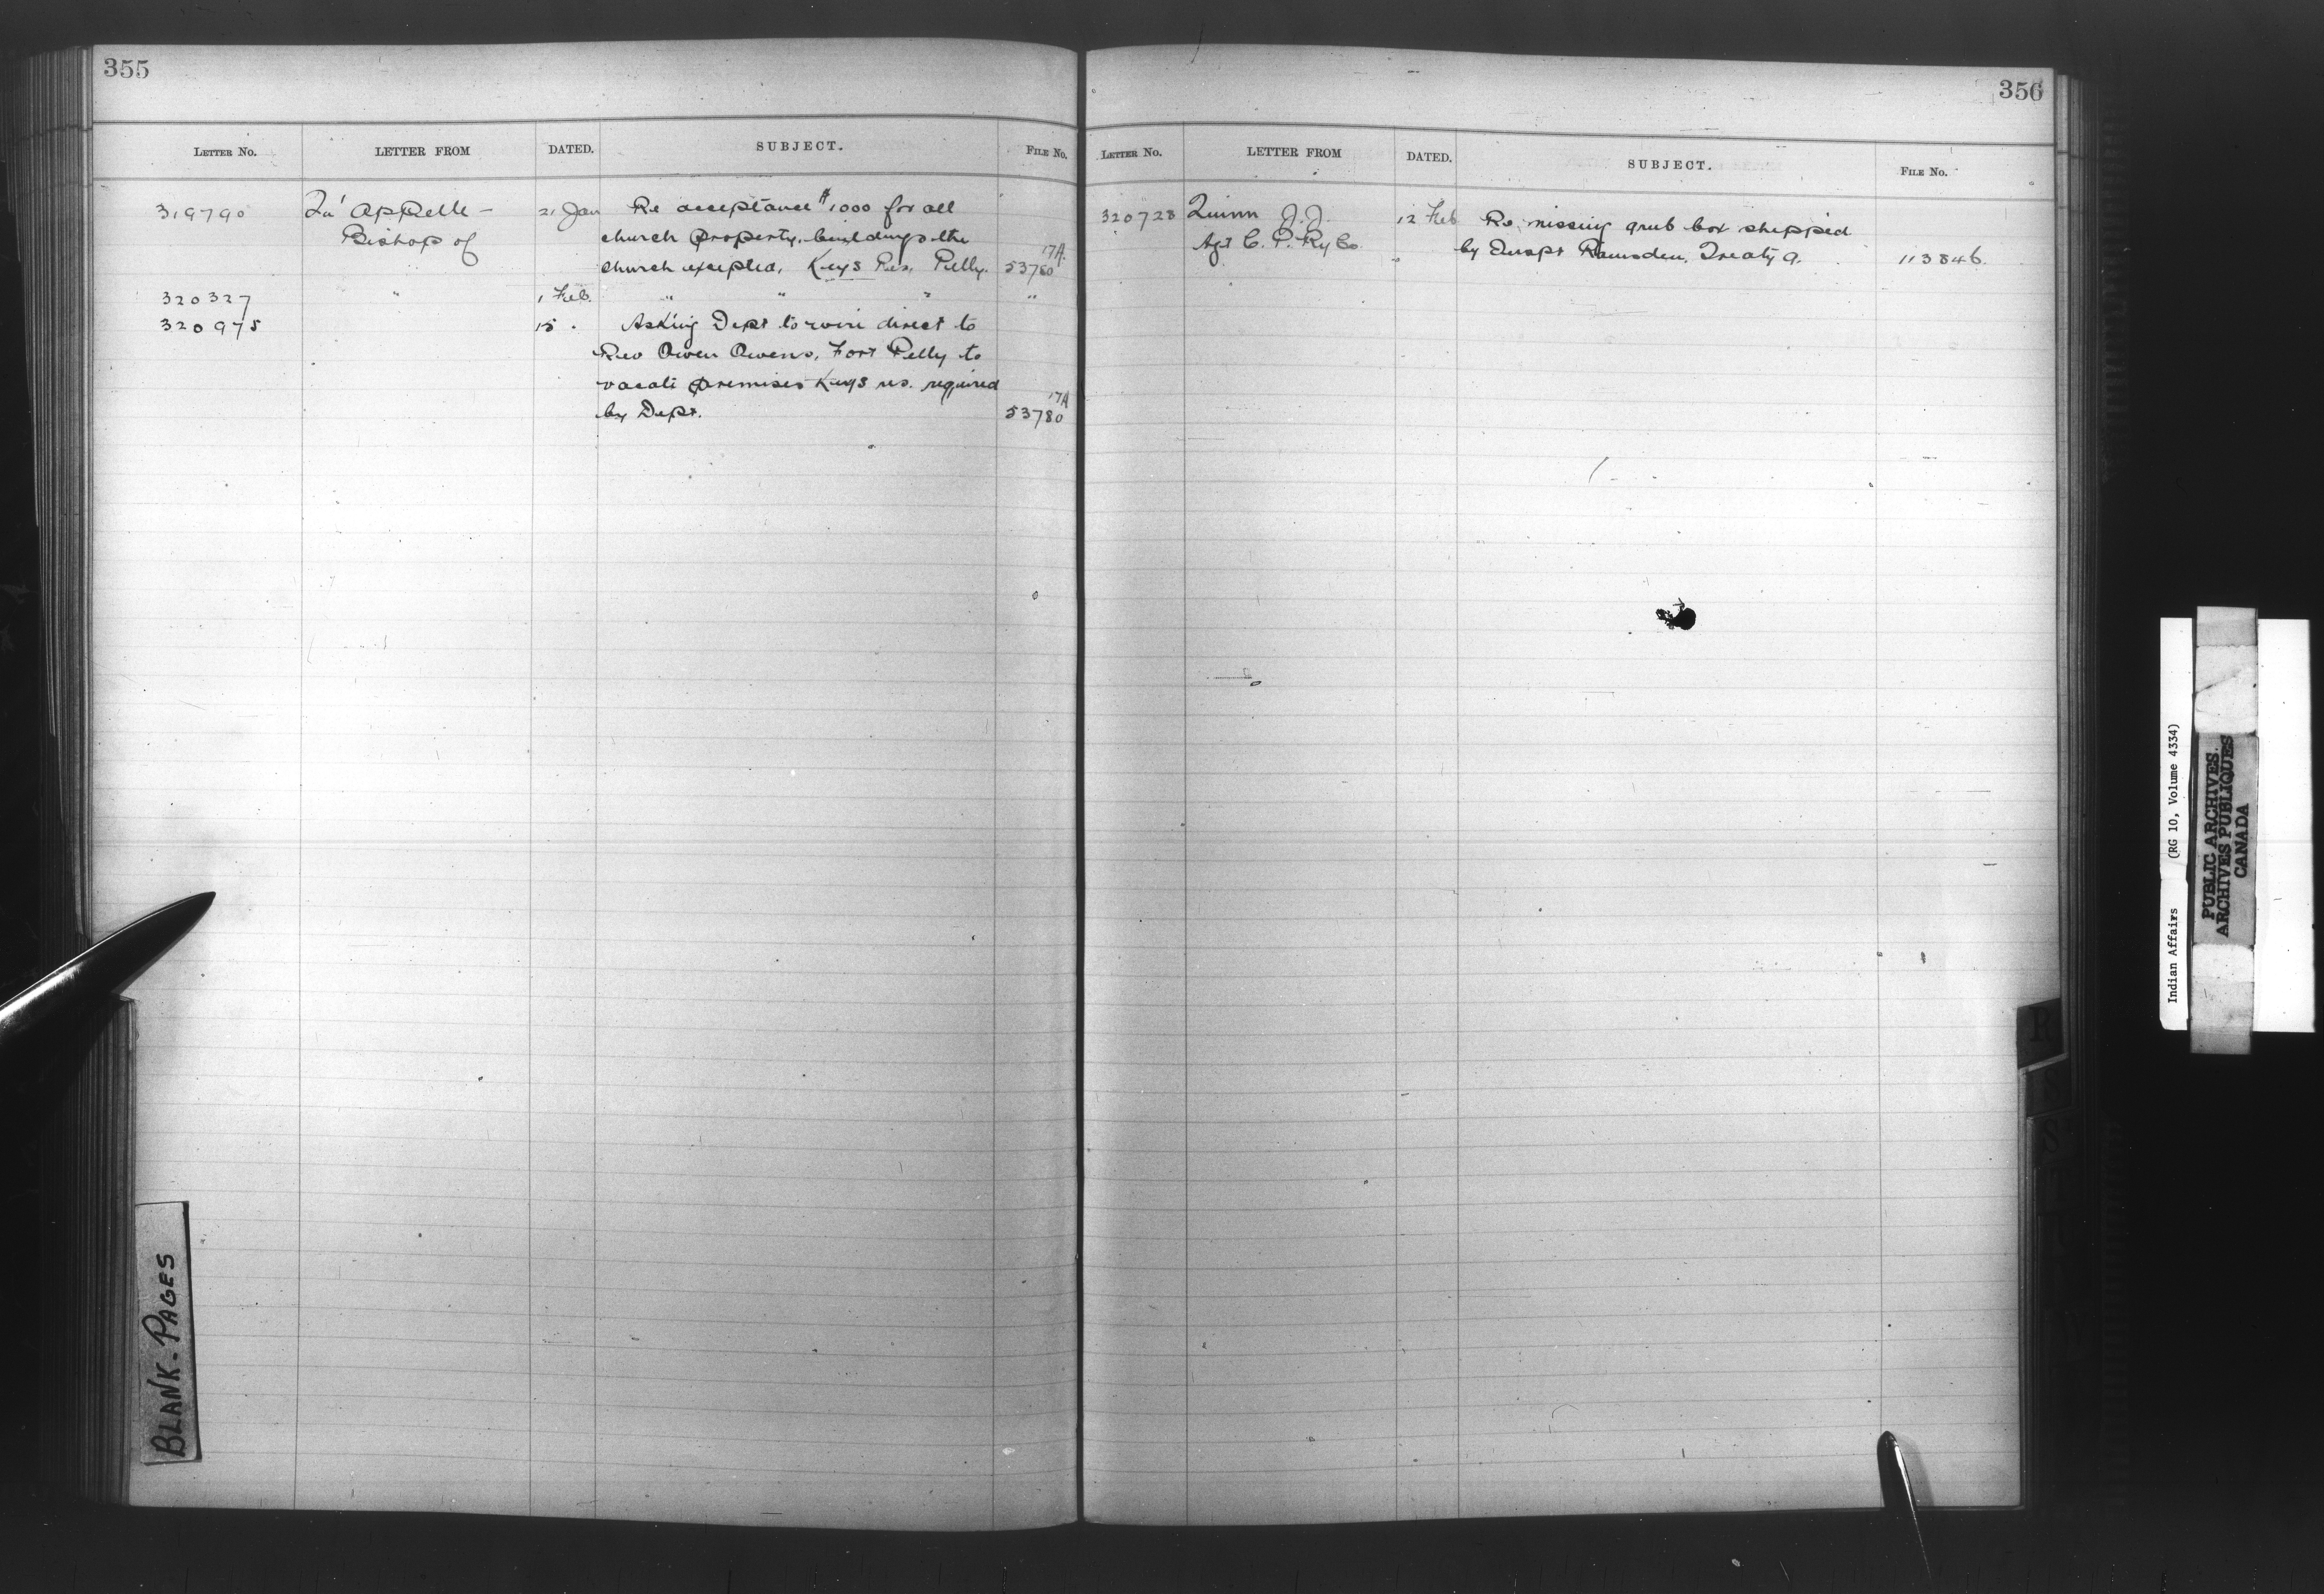 355
LETTER NO. LETTER FROM DATED. SUBJECT. FILE NO.
319790 Qu' Appelle - 21 Jan Re acceptance $1000 for all
Bishop of church property, buildings the 17A
church excepted, Keys Res. Pelly. 53780
320327 " 1 Feb. " " " "
320975 15 . Asking Dept to wire direct to
Rev Owen Owens, Fort Pelly to
vacate premises Keys res. required 17A
by Dept. 53780
BLANK-PAGES
356
LETTER NO. LETTER FROM DATED. SUBJECT. FILE NO.
320728 Quinn J.J. 12 Feb Re missing grub box shipped
Agt C. P. Ry Co. " by Inspt Ramsden, Treaty 9. 113846.
R
S
S
Indian Affairs (RG 10, Volume 4334)
PUBLIC ARCHIVES
ARCHIVES PUBLIQUES
CANADA